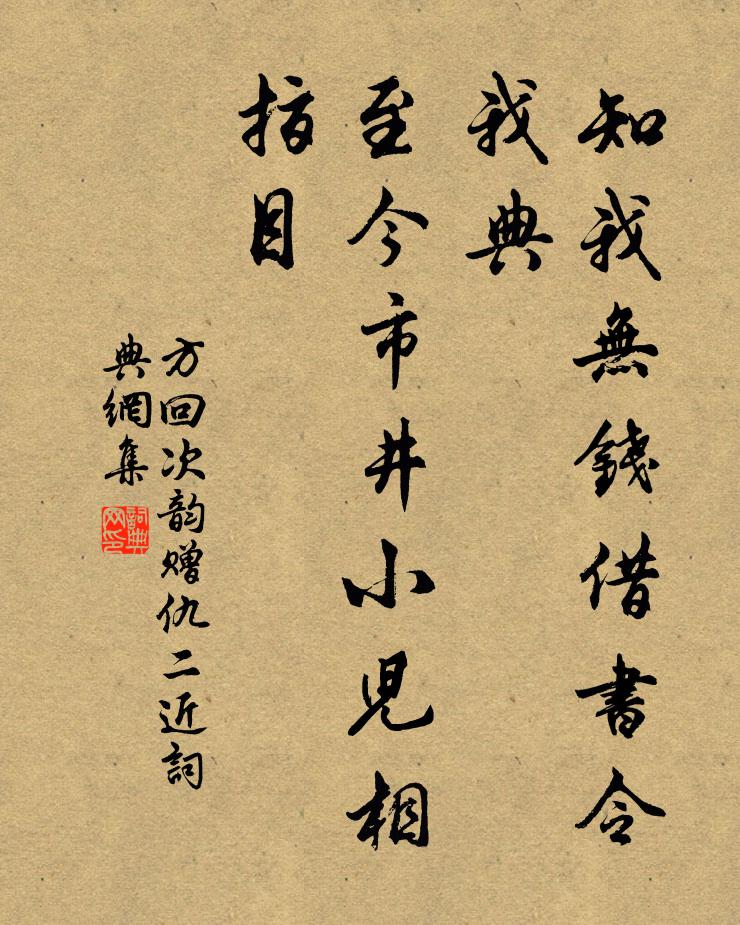 知我無錢借書令
我典
至今市井小児相
指目
方回次韵赠仇二近詞
典網集
詞典網印